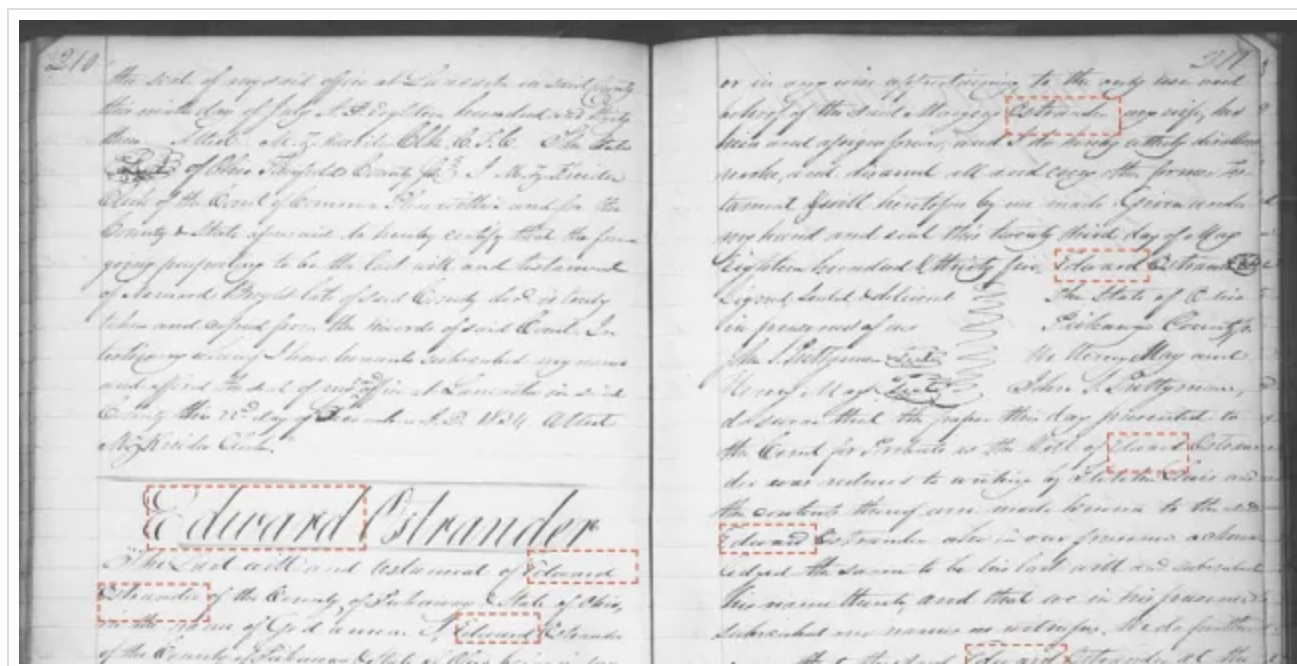 210
the seal of my said office at Lancaster in said County
this ninth day of July A.D. eighteen hundred and thirty
three. Attest M. Z. Kreider Clk. C. P. C. The State
of Ohio Fairfield County Ss. I M. Z. Kreider
Clerk of the Court of Common Pleas within and for the
County & State aforesaid do hereby certify that the fore
going purporting to be the last will and testament
of late of said County decd. is truly
taken and copied from the records of said Court. In
testimony whereof I have hereunto subscribed my name
and affixed the seal of my said office at Lancaster in said
County this 22d day of December A.D. 1834. Attest
M. Z. Kreider Clerk.
Edward Ostrander
The Last will and testament of Edward
Ostrander of the County of Pickaway & State of Ohio,
in the name of God amen. I, Edward Ostrander
of the County of Pickaway & State of Ohio being in
217
or in any wise appertaining to the only use and
behoof of the said Margery Ostrander my wife, her
heirs and assigns forever, and I do hereby utterly disallow
revoke, and disannul all and every other former tes
tament & will heretofore by me made. Given under
my hand and seal this twenty third day of May
Eighteen hundred & thirty five. Edward Ostrander Seal
Signed, Sealed & delivered The State of Ohio
in presence of us Pickaway County Ss.
John S. Prettyman Seal We Henry May and
Henry May Seal John S. Prettyman,
do swear that the paper this day presented to
the Court for Probate as the Will of Edward Ostran
der was reduced to writing by and
the contents thereof were made known to the said
Edward Ostrander who in our presence acknow
ledged the same to be his last will and subscribed
his name thereto, and that we in his presence
subscribed our names as witnesses. We do further
that the said Edward Ostrander at the